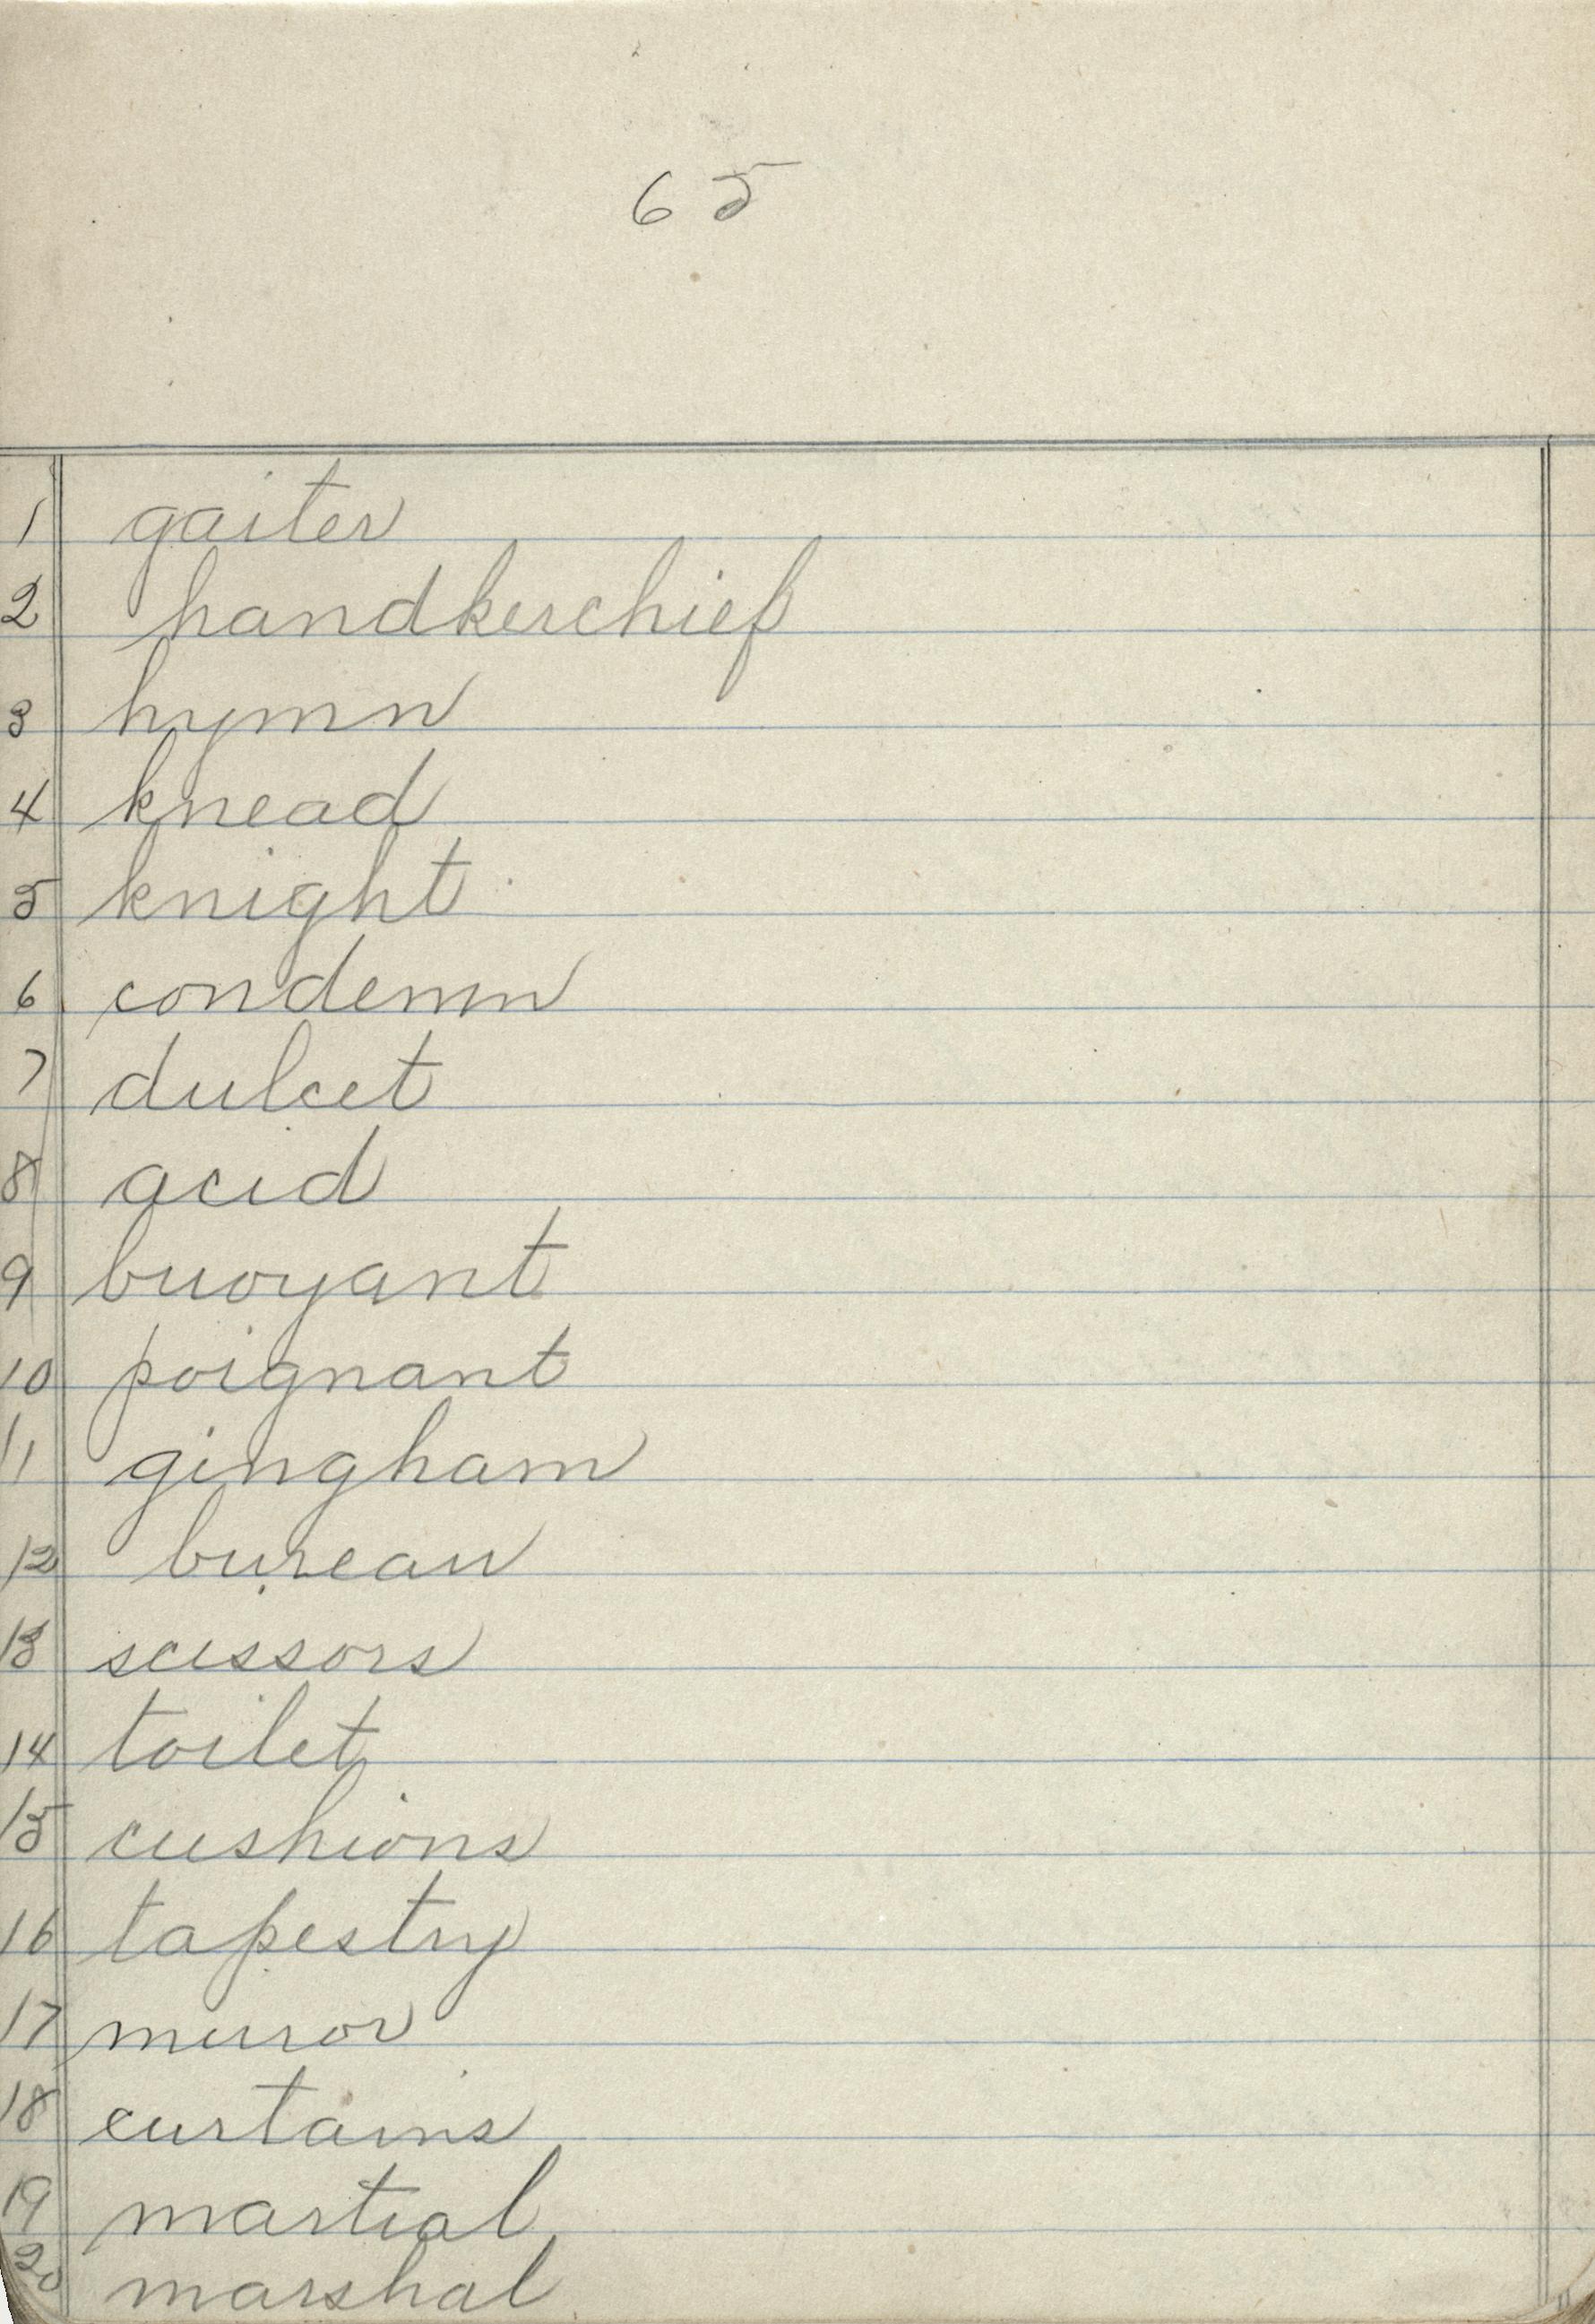 65
1 gaiter
2 handkerchief
3 hymn
4 knead
5 knight
6 condemn
7 dulcet
8 acid
9 buoyant
10 poignant
11 gingham
12 bureau
13 scissors
14 toilet
15 cushions
16 tapestry
17 mirror
18 curtains
19 martial
20 marshal